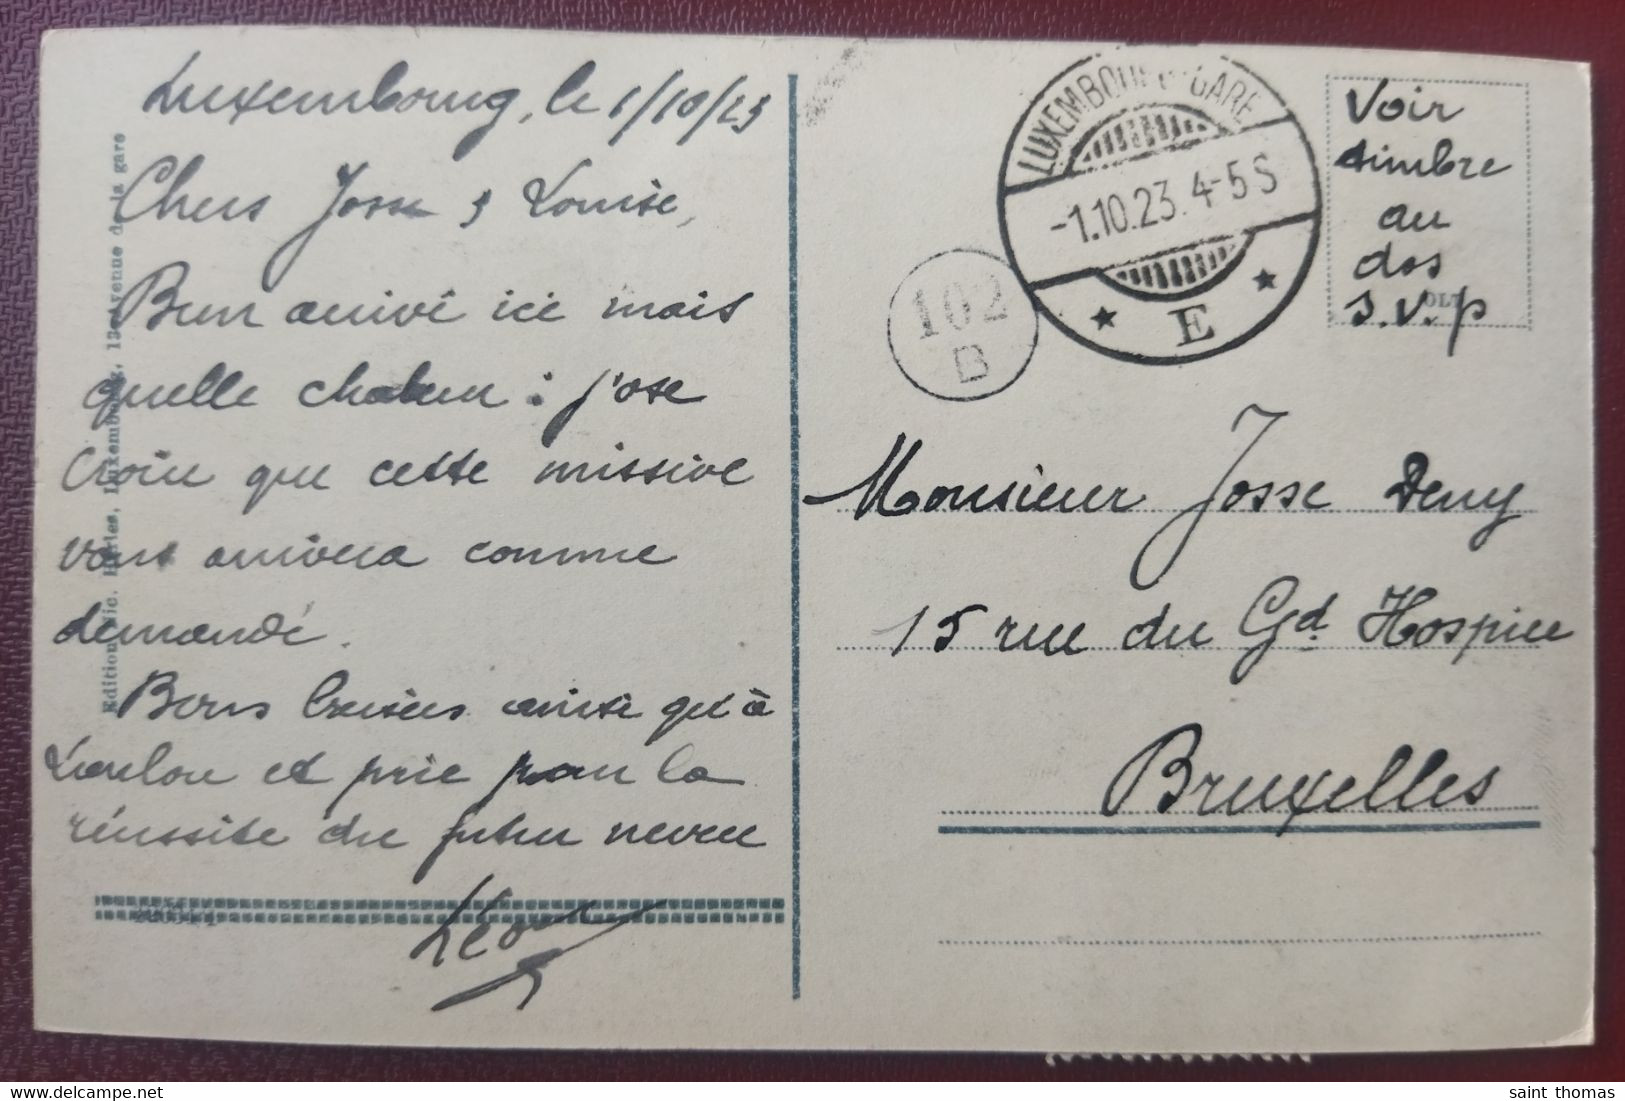 Luxembourg, le 1/10/23
Chers Josse & Louise,
Bien arrivé ici mais
quelle chaleur : j'ose
croire que cette missive
vous arrivera comme
demandé.
Bons baisers ainsi qu'à
Loulou et prie pour la
réussite du futur neveu
Léon
Edition Nic. 13 Avenue de la gare
LUXEMBOURG GARE
-1.10.23. 4-5 S
E
102
B
Voir
timbre
au
dos
s.v.p
Monsieur Josse Deny
15 rue du Gd Hospice
Bruxelles
saint_thomas